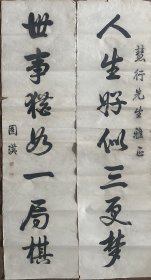 慧行先生雅正
人生好似三更梦
世事犹如一局棋